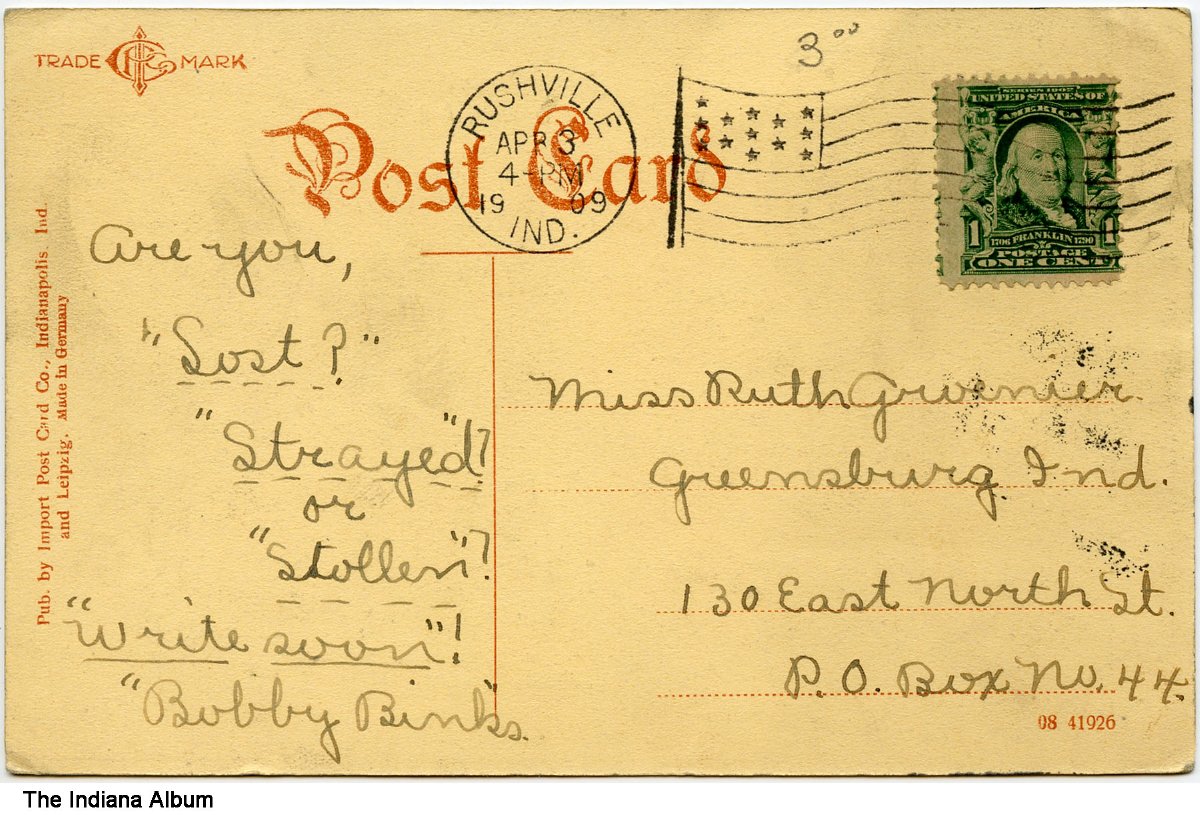 TRADE MARK
3⁰⁰
Post Card
RUSHVILLE
APR 3
4-PM
1909
IND.
SERIES 1902
UNITED STATES OF
AMERICA
1 1
1706 FRANKLIN 1790
POSTAGE
ONE CENT
Pub. by Import Post Card Co., Indianapolis, Ind.
and Leipzig. Made in Germany
Are you,
"Sost?"
"Strayed"?
or
"Stollen"?
"Write soon"!
"Bobby Binks".
Miss Ruth
Greensburg Ind.
130 East North St.
P.O. Box No. 44.
08 41926
The Indiana Album